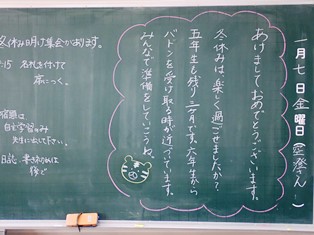 一月七日金曜日(空澄さん)
あけましておめでとうございます。
冬休みは、楽しく過ごせましたか?
五年生も残り三ヶ月です。六年生から
バトンを受け取る時が近づいています。
みんなで準備をしていこうね。
冬休み明け集会があります。
:15 名札を付けて
席につく。
宿題は
自主学習のみ
先生に出して下さい。
日誌 書きぞめは
後で